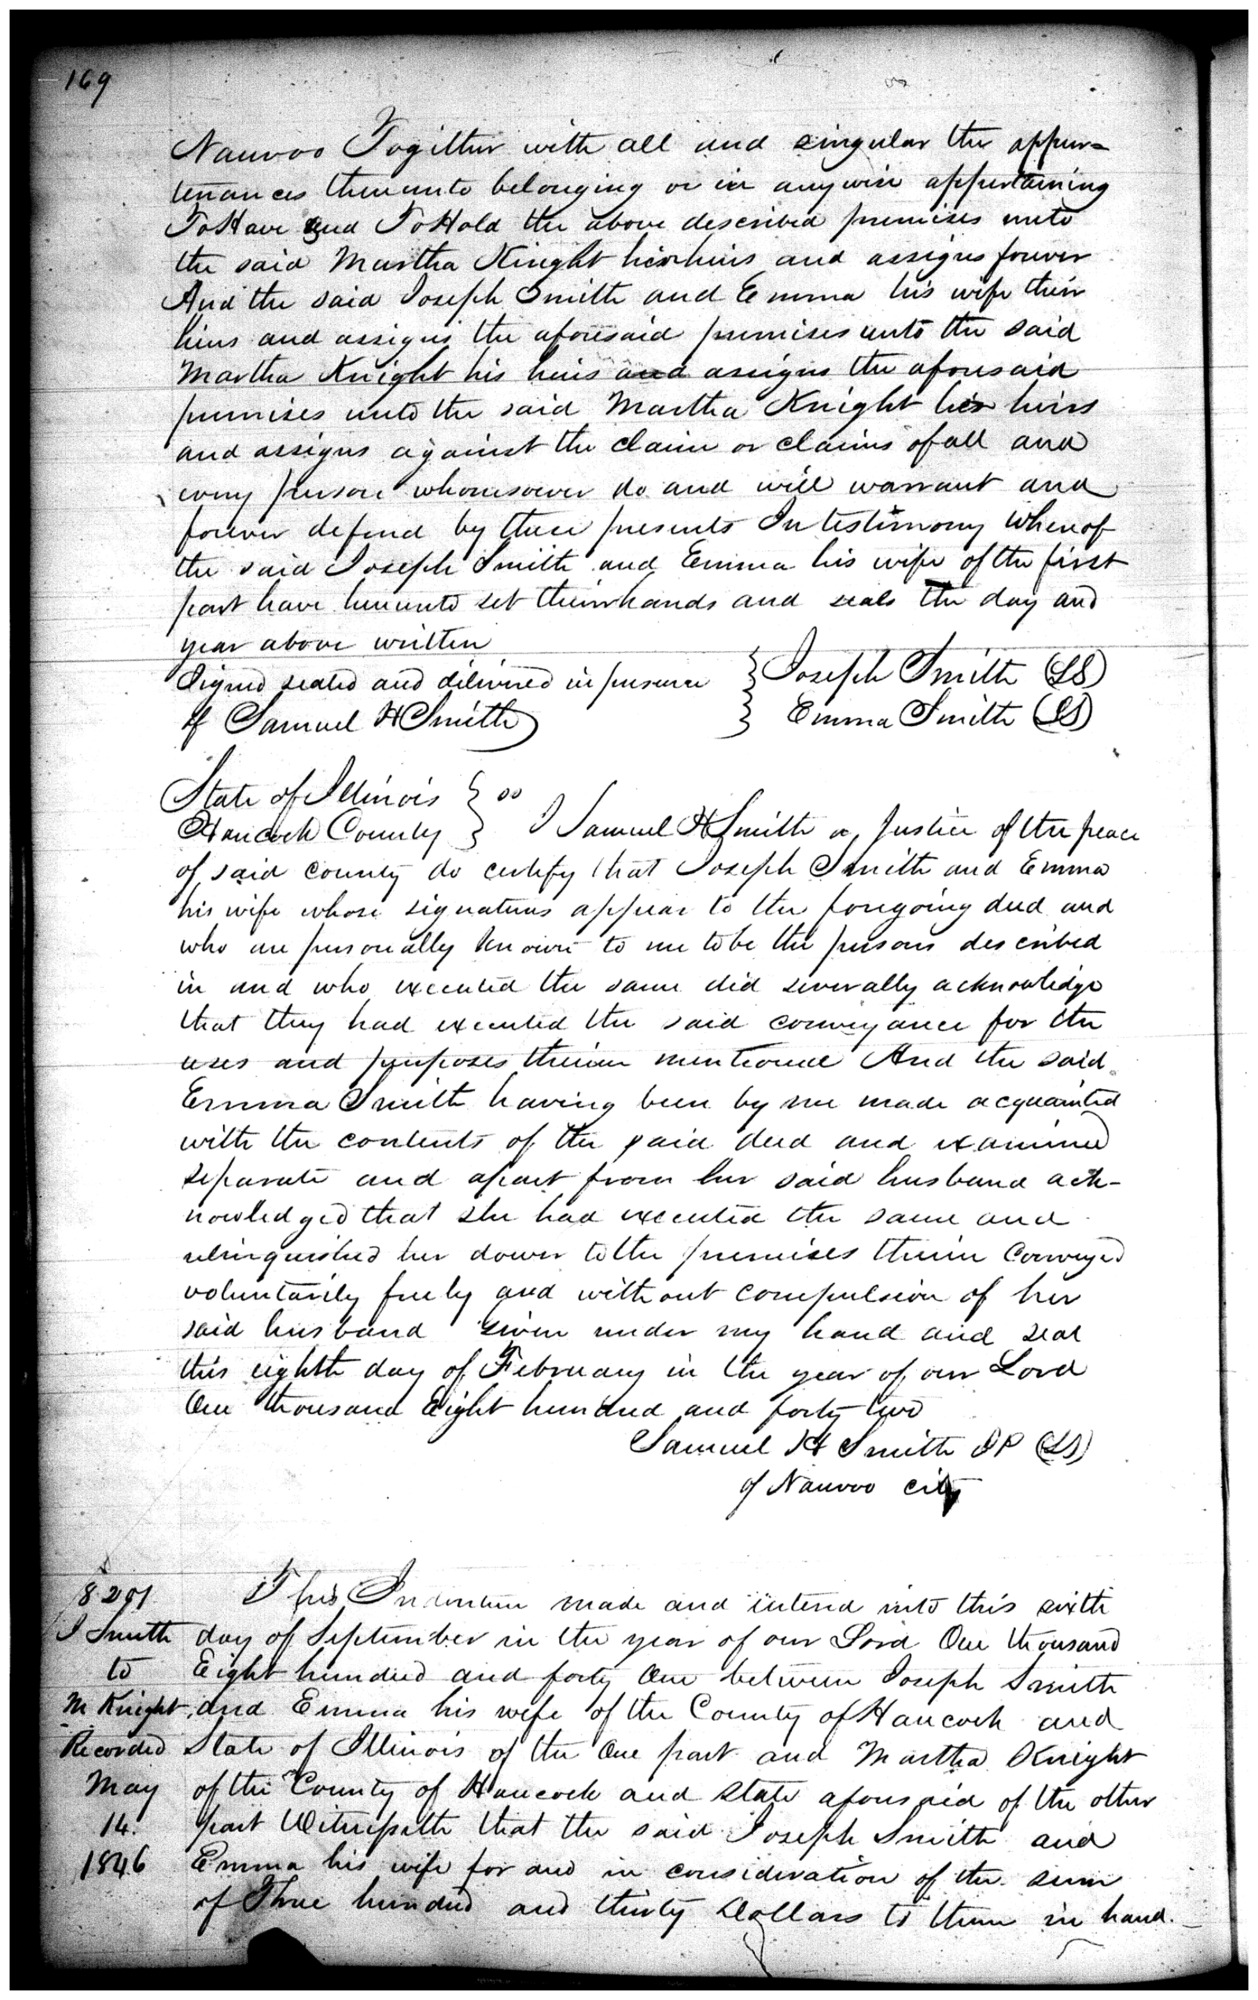 169
Nauvoo Together with all and singular the appur=
tenances thereunto belonging or in anywise appertaining
To Have and To Hold the above described premises unto
the said Martha Knight her heirs and assigns forever
And the said Joseph Smith and Emma his wife their
heirs and assigns the aforesaid premises unto the said
Martha Knight his heirs and assigns the aforesaid
premises unto the said Martha Knight her heirs
and assigns against the claim or claims of all and
every person whomsoever do and will warrant and
forever defend by these presents In testimony Whereof
the said Joseph Smith and Emma his wife of the first
part have hereunto set their hands and seals the day and
year above written
Signed sealed and delivered in presence } Joseph Smith (LS)
of Samuel H Smith } Emma Smith (LS)
State of Illinois } ss
Hancock County } I Samuel H Smith a Justice of the peace
of said county do certify that Joseph Smith and Emma
his wife whose signatures appear to the foregoing deed and
who are personally known to me to be the persons described
in and who executed the same did severally acknowledge
that they had executed the said conveyance for the
uses and purposes therein mentioned And the said
Emma Smith having been by me made acquainted
with the contents of the said deed and examined
separate and apart from her said husband ack-
nowledged that she had executed the same and
relinquished her dower to the premises therein Conveyed
voluntarily freely and without compulsion of her
said husband Given under my hand and seal
this eighth day of February in the year of our Lord
One thousand Eight hundred and forty two
Samuel H Smith JP (LS)
of Nauvoo city
8291
J Smith
to
M Knight
Recorded
May
14.
1846
This Indenture made and entered into this sixth
day of September in the year of our Lord One thousand
Eight hundred and forty One between Joseph Smith
and Emma his wife of the County of Hancock and
State of Illinois of the One part and Martha Knight
of the County of Hancock and State aforesaid of the other
part Witnesseth that the said Joseph Smith and
Emma his wife for and in consideration of the sum
of Three hundred and thirty Dollars to them in hand